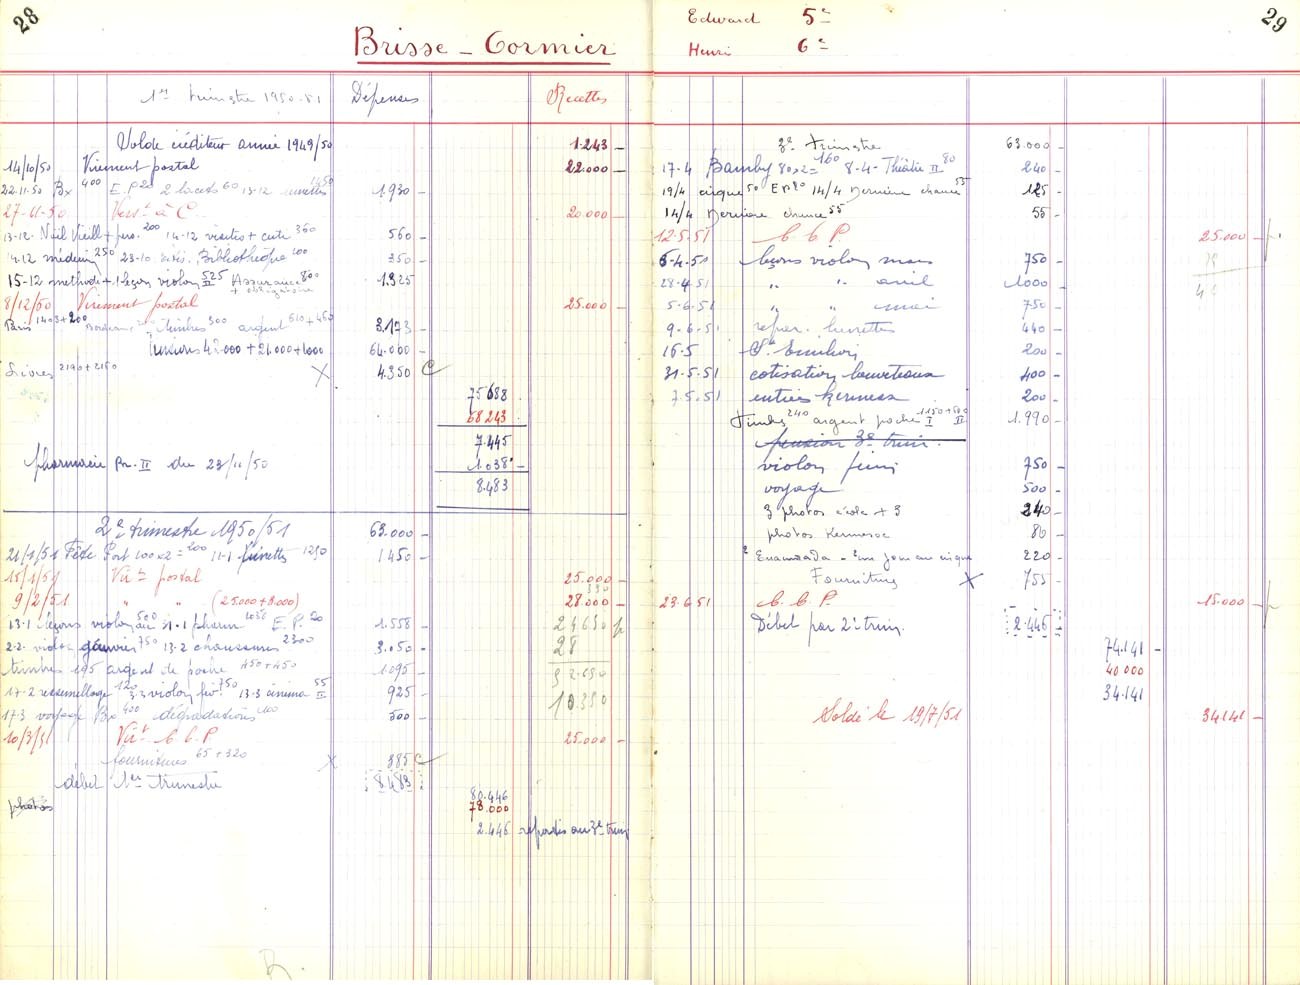 28
Brisse - Cormier
1er trimestre 1950-51 Dépenses Recettes
Solde créditeur année 1949/50 1.243 -
14/10/50 Virement postal 22.000 -
22.11.50 Bx 400 E.P 20 2 lacets 60 13-12 lunettes 1450 1.930 -
27-11-50 Verst à C. 20.000 -
13-12. Noël Vieill + pers. 200 14-12 visites + carte 360 560 -
14-12 médecin 250 23-10 Bibliothèque 100 350 -
15-12 méthode + 1 leçon violon 525 II Assurance 800 1.325
+ obligatoire
8/12/50 Virement postal 25.000 -
Paris 1403+200 timbres 300 argent 610+450 3.173 -
Pensions 42.000 + 21.000 + 1000 64.000 -
Livres 2190+2160 X 4.350 C
75688
68243
7.445
pharmacie Bx. II du 23/11/50 1.038 -
8.483
2e trimestre 1950/51 63.000 -
21/1/51 Fête Port 100x2 = 200 11-1 lunettes 1250 1450 -
15/1/51 Virt postal 25.000 -
350
9/2/51 " " (25.000 + 3.000) 28.000 -
13-1 leçons violon 500 31-1 pharm 1038 E.P. 20 1.558 - 24650 f
2-2 violon janvier 750 13-2 chaussures 2300 3.050 - 28
timbres 195 argent de poche 450+450 1095 -
17-2 ressemellage 120 3.3 violon fév. 750 13-3 cinéma 55 II 925 - 10350
17-3 voyage Bx 400 dégradations 100 500 -
10/3/51 Virt C C P 25.000 -
fournitures 65 + 320 X 385 C
débit 1er trimestre 8483
photos 80.446
78.000
2.446 reportés au 3e trim

29
Edward 5e
Henri 6e
3e trimestre 63.000 -
17-4 Bamby 80x2= 160 8-4- Théâtre II 80 240 -
19/4 cirque 50 EP 20 14/4 Dernière chance 55 125 -
14/4 Dernière chance 55 55 -
12-5.51 C C P 25.000 -
6-4-50 leçons violon mars 750 -
28-4-51 " " avril 1000 -
5-6-51 " " mai 750 -
9-6-51 répar. lunettes 440 -
16-5 St Emilion 200 -
31-5-51 cotisation louveteaux 400 -
7-5-51 entrées kermess 200 -
Timbres 240 argent poche 1150 I + 600 II 1.990 -
pension 3e trim.
violon juin 750 -
voyage 500 -
3 photos école + 3 240 -
photos Kermesse 80 -
220 -
Fournitures X 755 -
23-6-51 C. C. P. 15.000 -
Débet par 2e trim. 2.446 -
74.141 -
40 000
34.141
Soldé le 19/7/51 34141 -